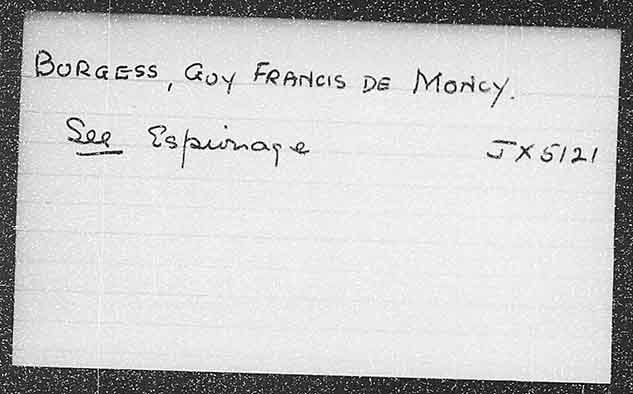 BURGESS, GUY FRANCIS DE MONCY.
See Espionage JX5121